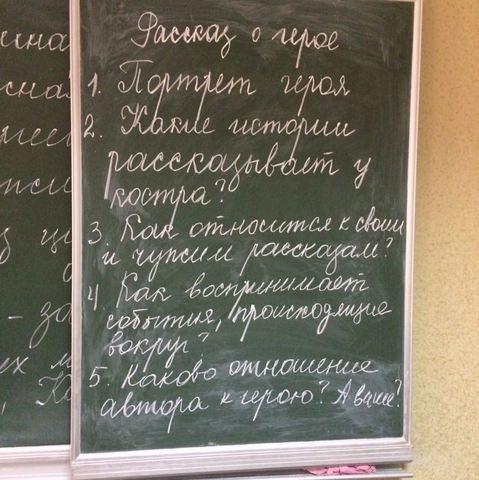 Рассказ о герое
1. Портрет героя
2. Какие истории
рассказывает у
костра?
3. Как относится к своим
и чужим рассказам?
4 Как воспринимает
события, происходящие
вокруг?
5. Каково отношение
автора к герою? А ваше?